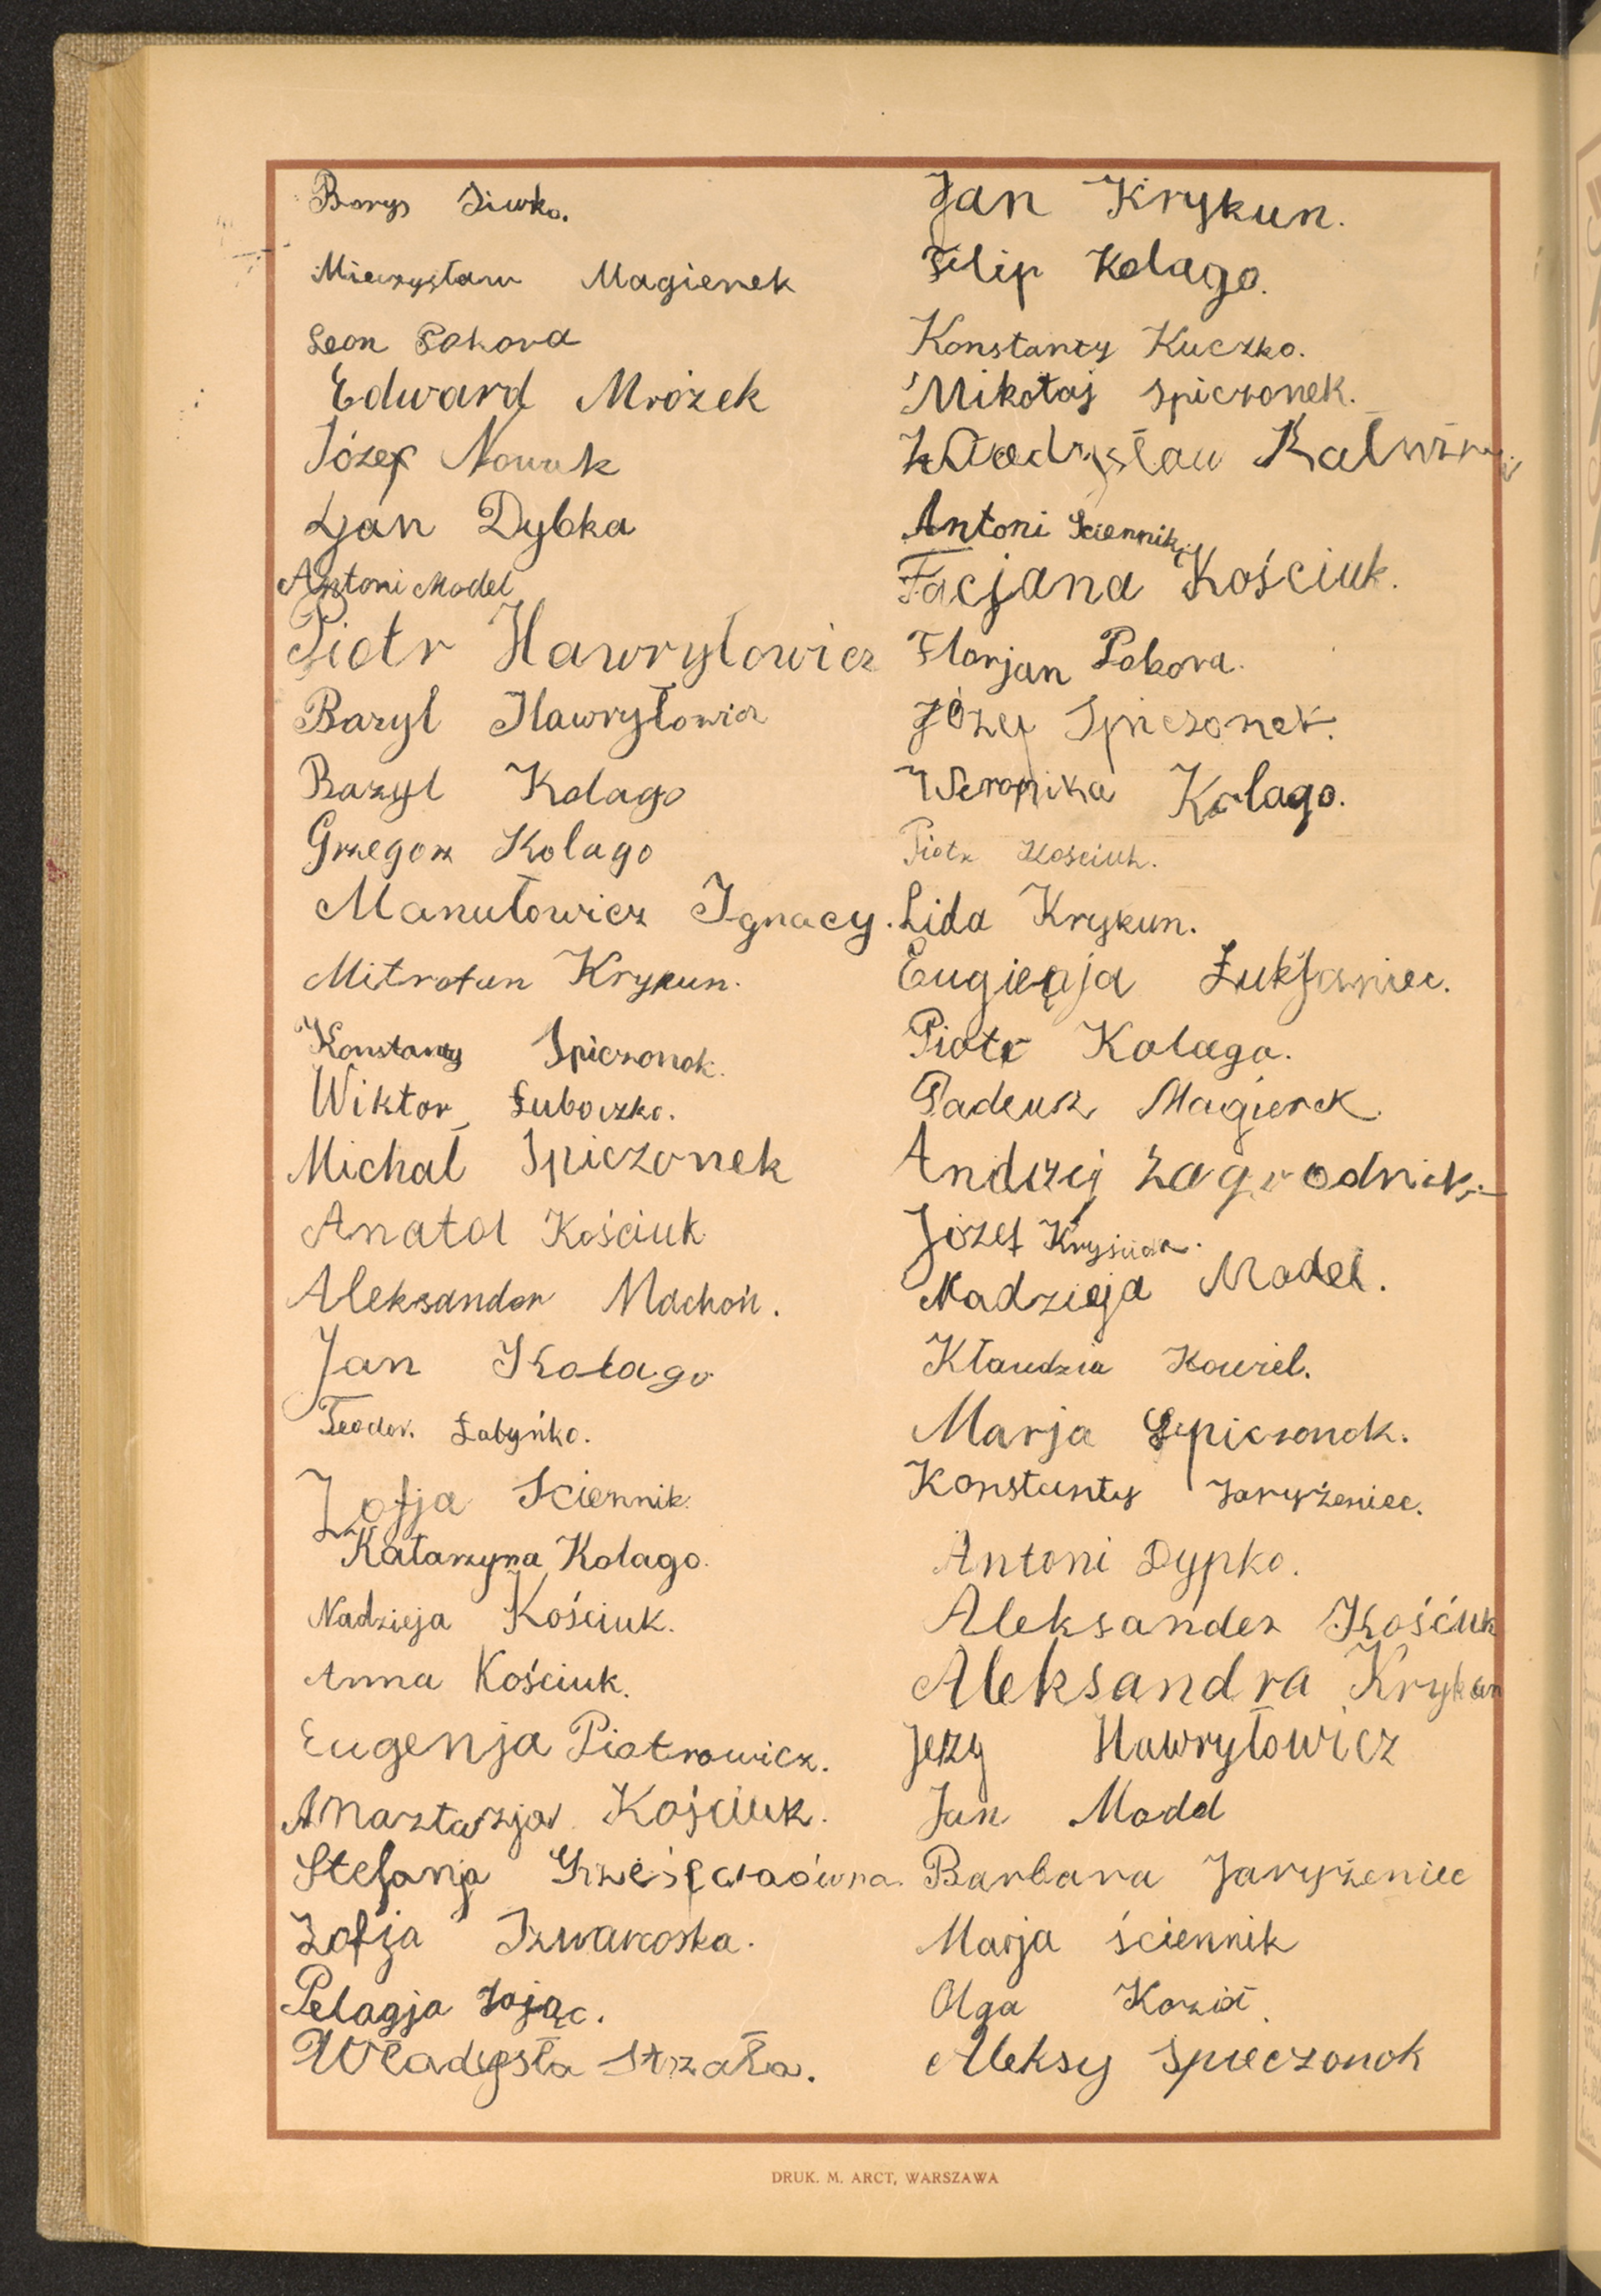 Borys Siwko.
Mieczysław Magierek
Leon Pokora
Edward Mrozek
Józef Nowak
Jan Dybka
Antoni Model
Piotr Hawryłowicz
Bazyl Hawryłowicz
Bazyl Kolago
Grzegorz Kolago
Manułowicz Ignacy.
Mitrofan Krykun.
Konstanty Spiczonok.
Wiktor Łuboczko.
Michał Spiczonek
Anatol Kościuk
Aleksander Machoń.
Jan Kolago
Teodor. Łabyńko.
Zofja Sciennik.
Katarzyna Kolago.
Nadzieja Kościuk.
Anna Kościuk.
Eugenja Piotrowicz.
Anaztazja Kościuk.
Stefanja
Zofja
Pelagja Zając.
Władysła Strzała.
Jan Krykun.
Filip Kolago.
Konstanty Kuczko.
Mikołaj Spiczonek.
Władysław
Antoni Sciennik.
Tacjana Kościuk.
Florjan Pokora.
Józef Spiczonek.
Weronika Kolago.
Piotr Kościuk.
Lida Krykun.
Eugienja Łukjaniec.
Piotr Kolago.
Tadeusz Magierek.
Andrzej Zagrodnik.
Józef
Nadzieja Model.
Kławdzia Kowel.
Marja Spiczonok.
Konstanty Jaryżeniec.
Antoni Dypko.
Aleksander Kośćiuk
Aleksandra Krykun
Jerzy Hawryłowicz
Jan Model
Barbara Jaryżeniec
Marja ściennik
Olga Kozioł.
Aleksy Spieczonok
DRUK. M. ARCT, WARSZAWA